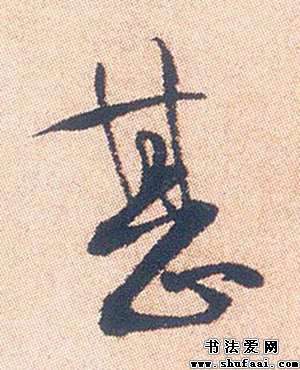 甚
书法爱网
www.shufaai.com